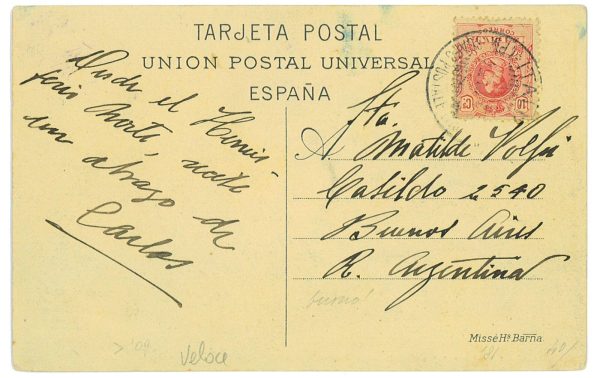 TARJETA POSTAL
UNION POSTAL UNIVERSAL
ESPAÑA
Desde el Hemis-
ferio Norte, recibe
un abrazo de
Carlos
Sta.
A Matilde
Casildo 2540
Buenos Aires
R. Argentina
Missé Hs. Barña
Veloce